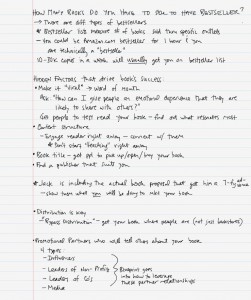 How Many Books do you have to sell to have Bestseller?
→ There are diff types of bestsellers
* Bestseller lists measure # of books sold thru specific outlets
- You could be Amazon.com bestseller for 1 hour & you are technically a "bestseller"
10-30K copies in a week will usually get you on bestseller list
Hidden Factors that drive book's success:
- Make it "viral" → word of mouth
Ask "How can I give people an emotional experience that they are likely to share with others?"
Get people to test read your book - find out what resonates most
- Content structure
- Engage reader right away - connect w/ them
* Don't start teaching right away
- Book title - get ppl to pick up/open/buy your book
- Find a publisher that suits you
* Jack is including the actual book proposal that got him a 7-fig
- show them what you will be doing to mkt your book
- Distribution is key
"Bypass Distribution" - get your book where people are (not just bookstores)
- Promotional Partners who will tell others about your book
4 types
- Influencers
- Leaders of Non-Profits
- Leaders of Co's
- Media
Blueprint goes into how to leverage these partner relationships